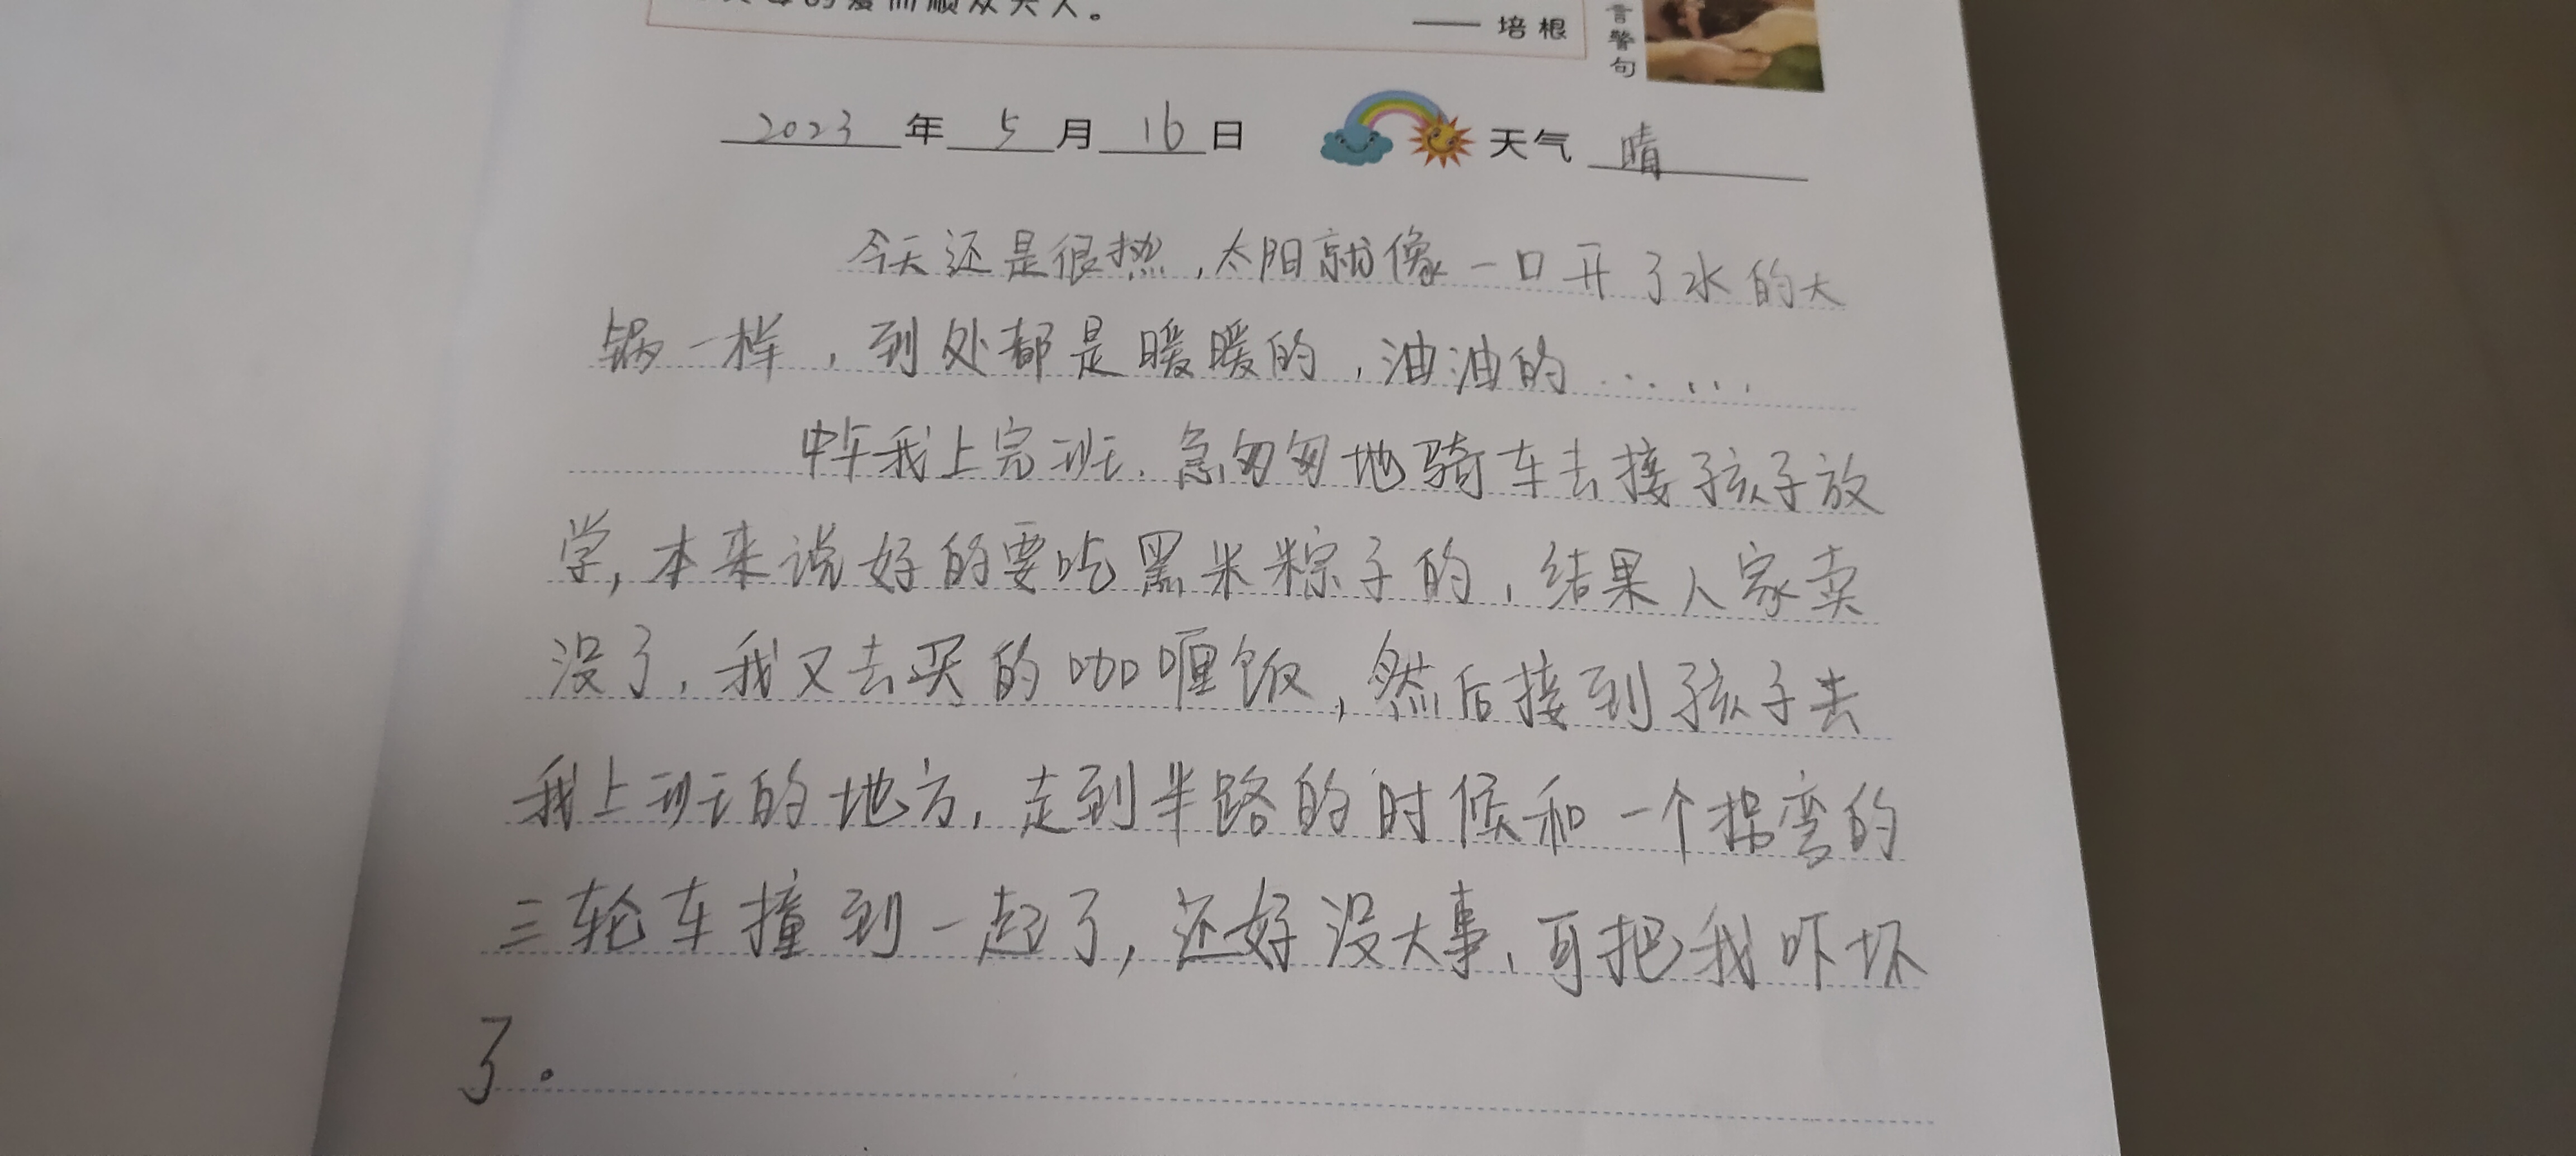 的爱而顺从夫人。
—— 培根
言警句
2023 年 5 月 16 日 天气 晴
今天还是很热,太阳就像一口开了水的大
锅一样,到处都是暖暖的,油油的……
中午我上完班.急匆匆地骑车去接孩子放
学,本来说好的要吃黑米粽子的,结果人家卖
没了,我又去买的咖喱饭,然后接到孩子去
我上班的地方,走到半路的时候和一个拐弯的
三轮车撞到一起了,还好没大事,可把我吓坏
了。